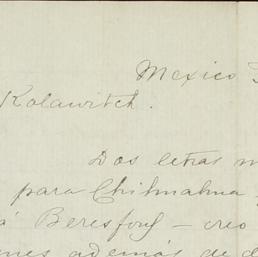 Mexico
Kolawitch.
Dos letras
para Chihuahua
á Beresford – creo
además de